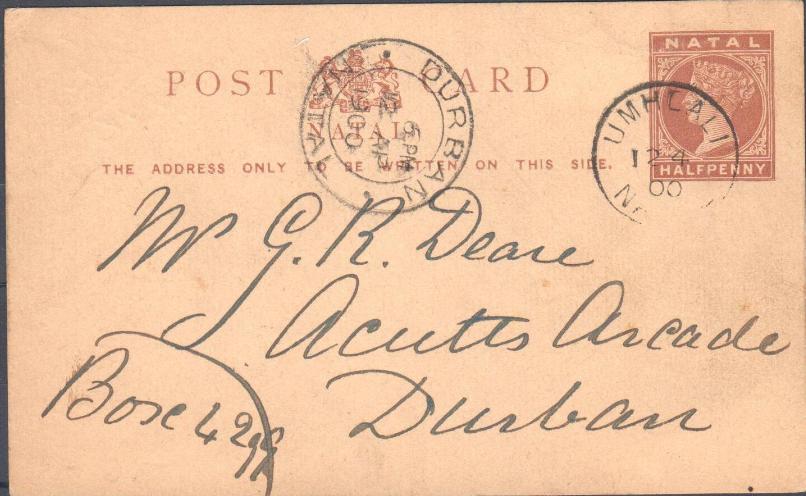 NATAL
POST CARD
NATAL
THE ADDRESS ONLY TO BE WRITTEN ON THIS SIDE.
HALFPENNY
DURBAN
NATAL
6 PM
12 AP
1900
UMHLALI
12 4
00
Mr G. R. Deare
Acutts Arcade
Durban
Box 429